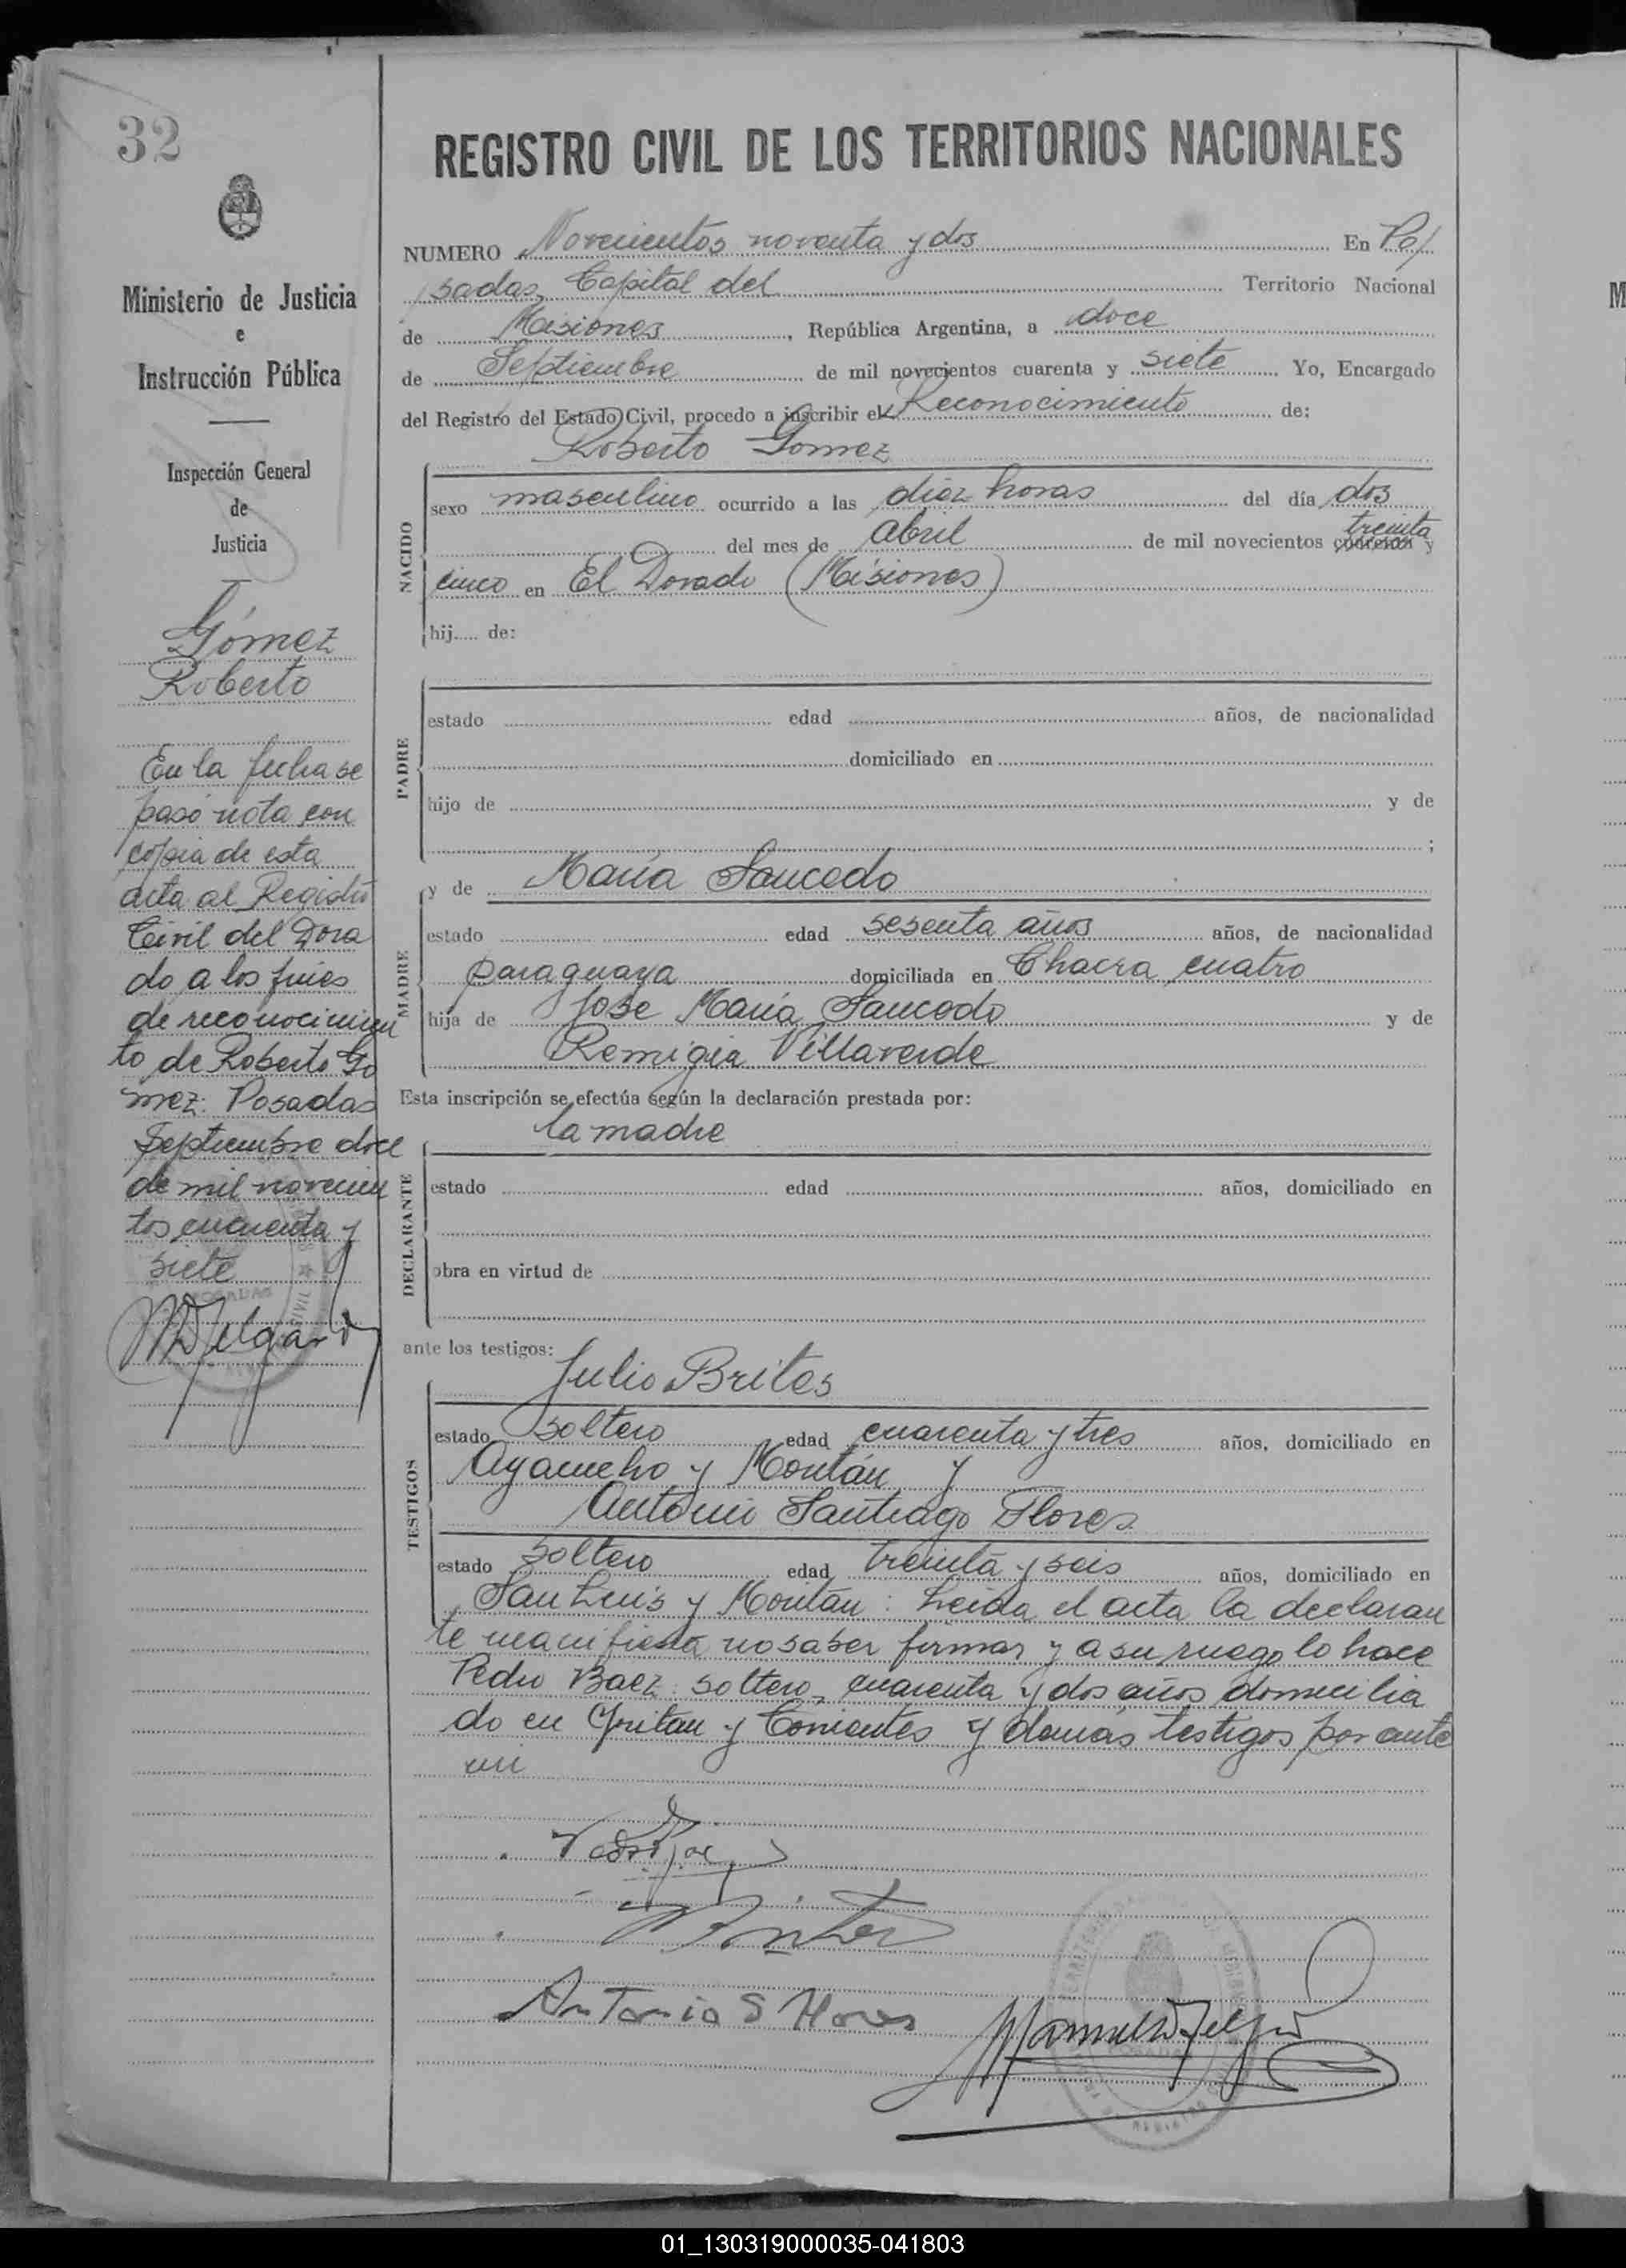 32
Ministerio de Justicia
e
Instrucción Pública
Inspección General
de
Justicia
Gómez
Roberto
En la fecha se
pasó nota con
copia de esta
acta al Registro
Civil del Dora
do a los fines
de reconocimien
to de Roberto Go
mez. Posadas
Septiembre doce
de mil novecien
tos cuarenta y
siete
REGISTRO CIVIL DE LOS TERRITORIOS NACIONALES
NUMERO Novecientos noventa y dos En Po/
/sadas, Capital del Territorio Nacional
de Misiones, República Argentina, a doce
de Septiembre de mil novecientos cuarenta y siete Yo, Encargado
del Registro del Estado Civil, procedo a inscribir el Reconocimiento de:
Roberto Gomez
NACIDO
sexo masculino ocurrido a las diez horas del día dos
del mes de abril de mil novecientos treinta y
cinco en El Dorado (Misiones)
hij..... de:
PADRE
estado edad años, de nacionalidad
domiciliado en
hijo de y de
;
MADRE
y de María Saucedo
estado edad sesenta años años, de nacionalidad
paraguaya domiciliada en Chacra cuatro
hija de José María Saucedo y de
Remigia Villaverde
Esta inscripción se efectúa según la declaración prestada por:
la madre
DECLARANTE
estado edad años, domiciliado en
obra en virtud de
ante los testigos:
Julio Brites
TESTIGOS
estado soltero edad cuarenta y tres años, domiciliado en
Ayacucho y Moritán y
Antonio Santiago Flores
estado soltero edad treinta y seis años, domiciliado en
San Luis y Moritán: Leída el acta la declaran
te manifiesta no saber firmar y a su ruego lo hace
Pedro Baez soltero, cuarenta y dos años domicilia
do en y Corrientes y demás testigos por ante
mi
Antonio S Flores
01_130319000035-041803